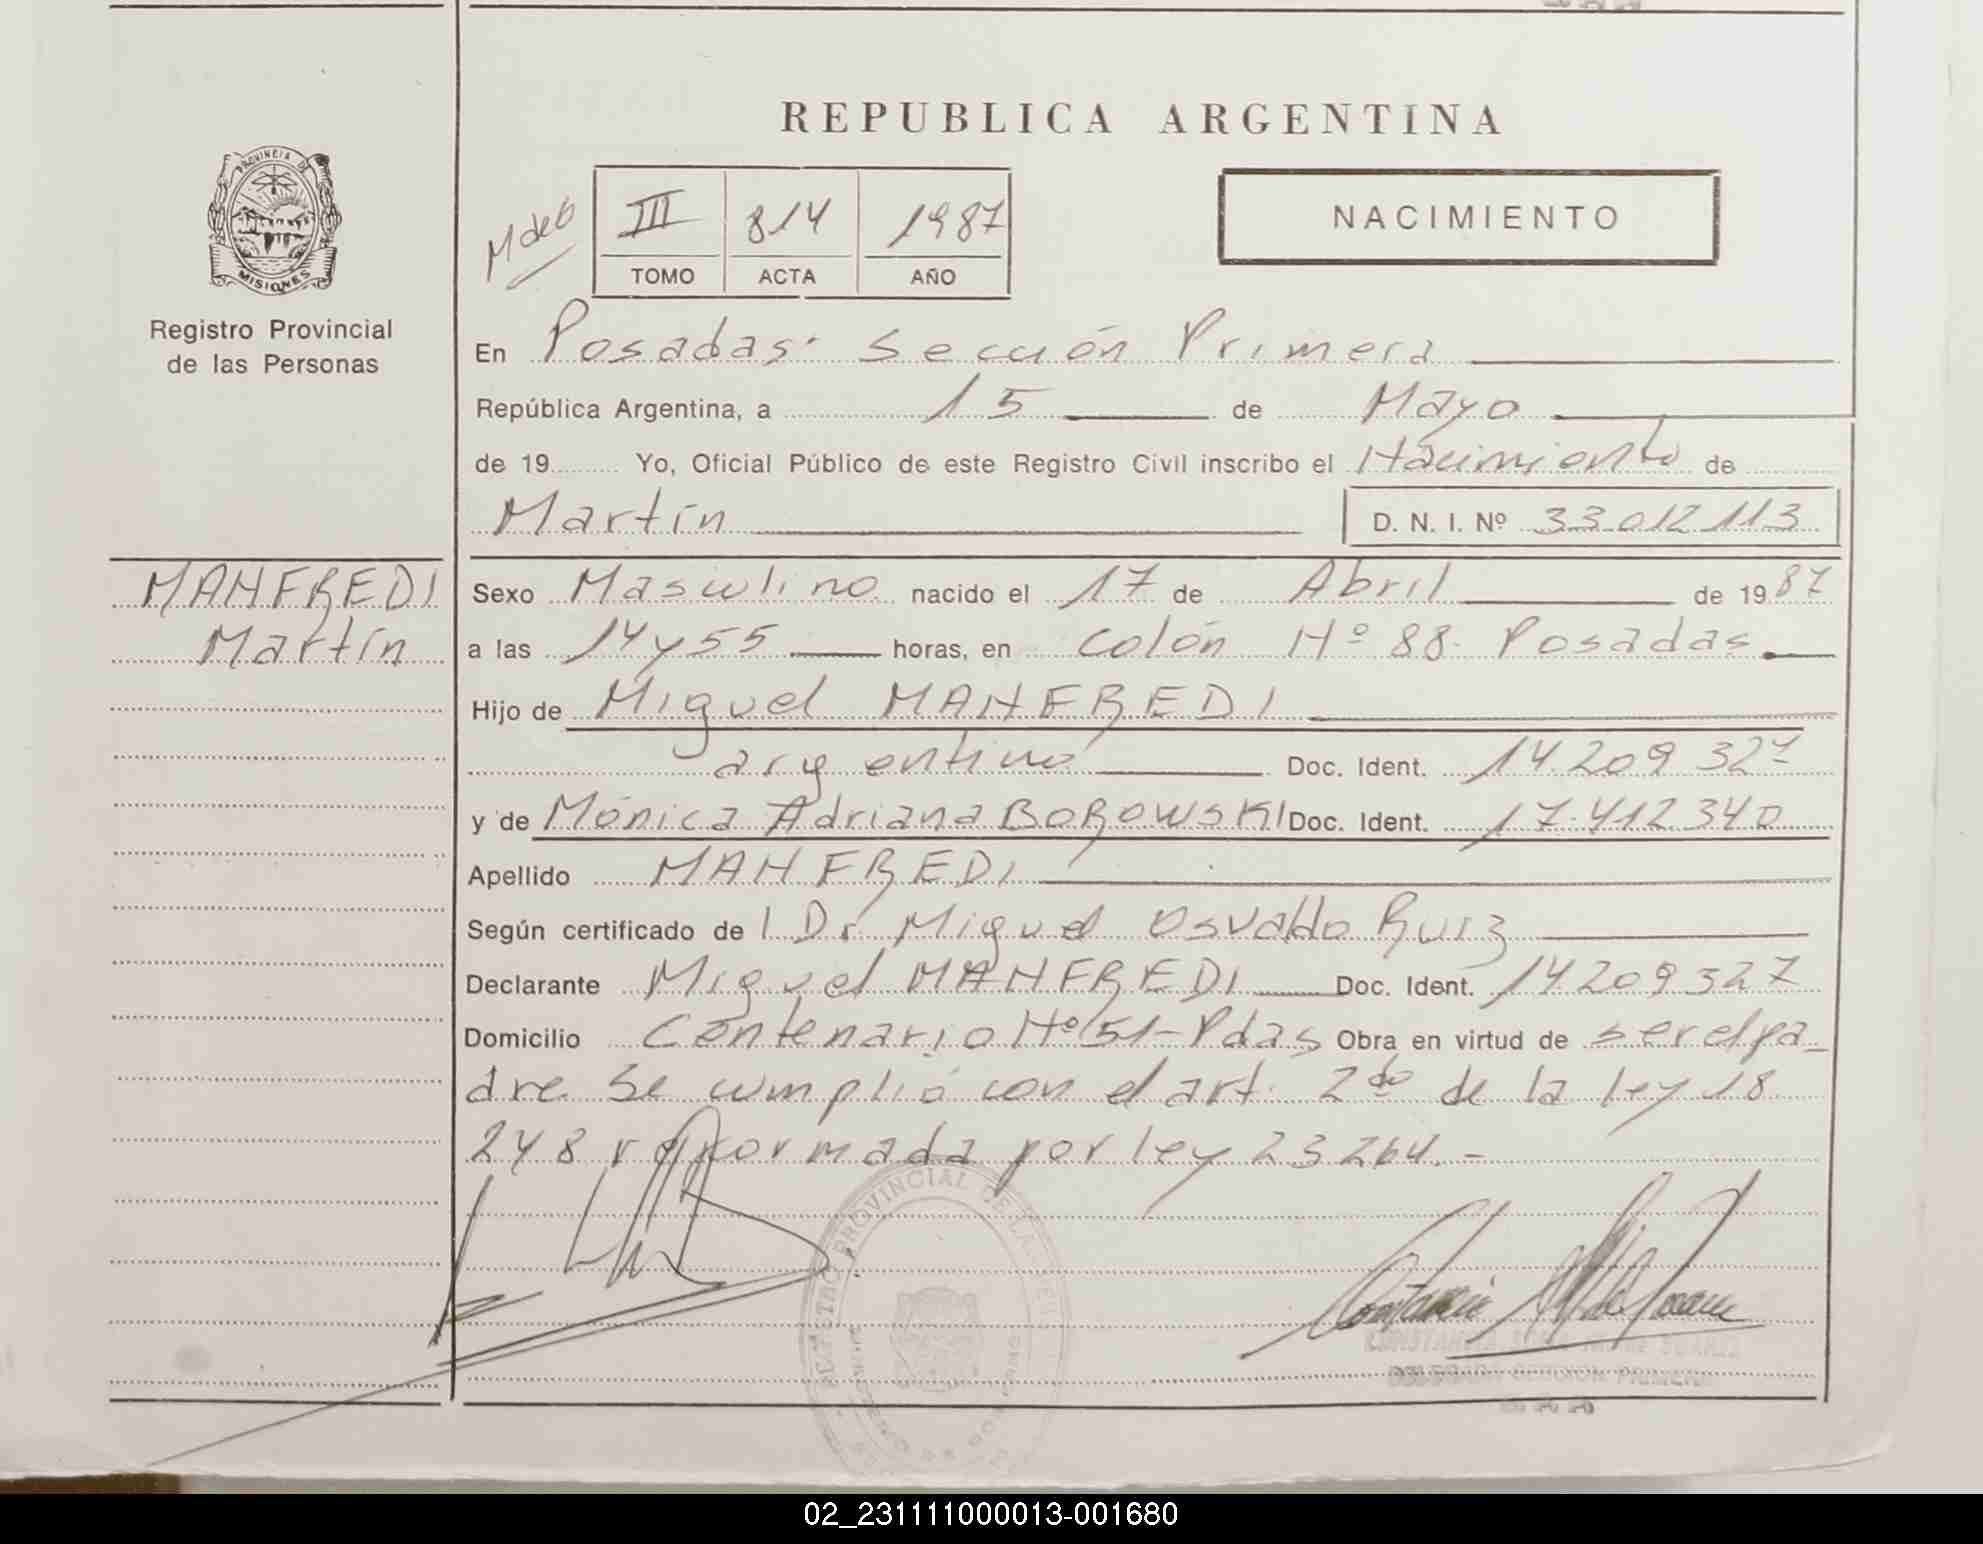 REPUBLICA ARGENTINA
PROVINCIA DE
MISIONES
Registro Provincial
de las Personas
III 814 1987
TOMO ACTA AÑO
NACIMIENTO
En Posadas. Sección Primera
República Argentina, a 15 de Mayo
de 19 Yo, Oficial Público de este Registro Civil inscribo el Nacimiento de
Martín D. N. I. Nº 33 012 113
MANFREDI
Martín
Sexo Masculino nacido el 17 de Abril de 1987
a las 14 y 55 horas, en Colón Nº 88. Posadas.
Hijo de Miguel MANFREDI
argentino Doc. Ident. 14.209 327
y de Mónica Adriana BOROWSKI Doc. Ident. 17.412 340
Apellido MANFREDI
Según certificado de l Dr Miguel Osvaldo Ruiz
Declarante Miguel MANFREDI Doc. Ident. 14 209 327
Domicilio Centenario Nº 51-Pdas Obra en virtud de ser el pa-
dre. Se cumplió con el art. 2do de la ley 18
248 reformada por ley 23264.-
REGISTRO PROVINCIAL DE LAS
DELEGADA SECCION PRIMERA
02_231111000013-001680